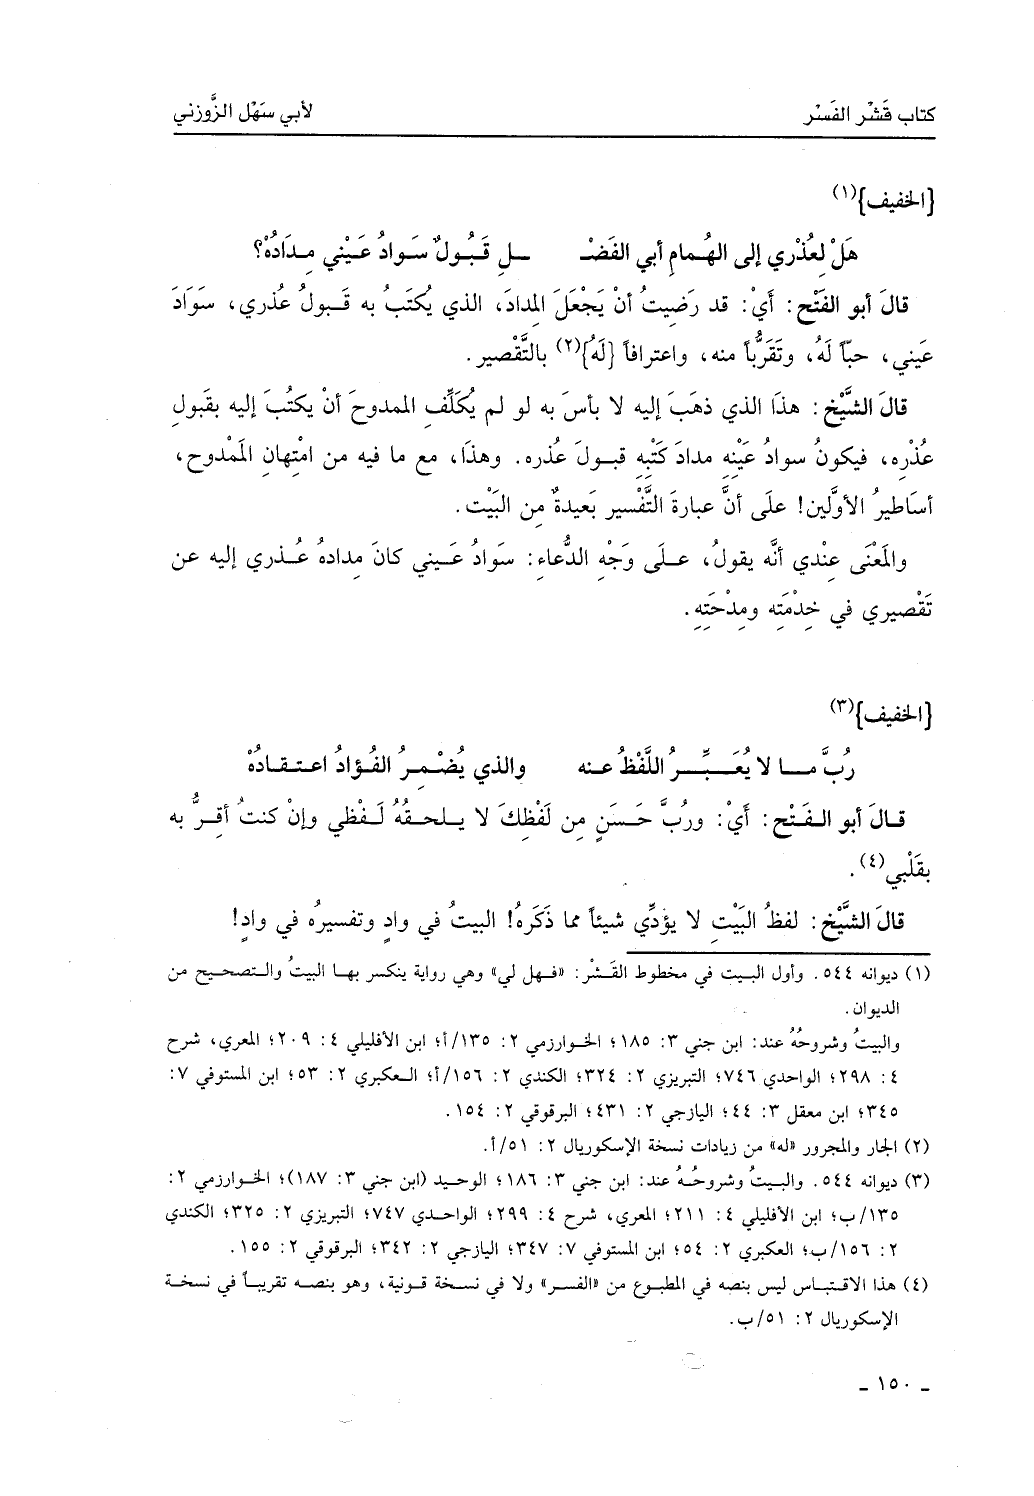 كتاب قَشْر الفَسْر
لأبي سَهْل الزَّوزني
{الخفيف}(١)
هَلْ لِعُذْري إلى الهُمامِ أبي الفَضْـ ـلِ قَبُولٌ سَوادُ عَيْني مِدَادُهْ؟
قالَ أبو الفَتْح: أَيْ: قد رَضِيتُ أنْ يَجْعَلَ المِدادَ، الذي يُكتَبُ به قَبولُ عُذري، سَوَادَ
عَيني، حبّاً لَهُ، وتَقَرُّباً منه، واعترافاً {لَهُ}(٢) بالتَّقْصير.
قالَ الشَّيْخ: هذَا الذي ذهَبَ إليه لا بأسَ به لو لم يُكَلِّفِ الممدوحَ أنْ يكتُبَ إليه بقَبولِ
عُذْرِه، فيكونُ سوادُ عَيْنِهِ مدادَ كَتْبِهِ قبولَ عُذرِه. وهذَا، مع ما فيه من امْتِهانِ المَمْدوح،
أسَاطيرُ الأوَّلين! علَى أنَّ عبارةَ التَّفْسير بَعيدةٌ مِن البَيْت.
والمَعْنَى عِنْدي أنَّه يقولُ، علَى وَجْهِ الدُّعاءِ: سَوادُ عَيني كانَ مِدادهُ عُذري إليه عن
تَقْصيري في خِدْمَتِه ومِدْحَتِهِ.
{الخفيف}(٣)
رُبَّ مـا لا يُعَبِّـرُ اللَّفْظُ عنه والذي يُضْمِرُ الفُؤادُ اعتقادُهْ
قالَ أبو الفَتْح: أَيْ: ورُبَّ حَسَنٍ مِن لَفْظِكَ لا يلحقُهُ لَفْظي وإنْ كنتُ أقِرُّ به
بقَلْبي(٤).
قالَ الشَّيْخ: لفظُ البَيْتِ لا يؤدِّي شيئاً مما ذَكَرَهُ! البيتُ في وادٍ وتفسيرُه في وادٍ!
(١) ديوانه ٥٤٤. وأول البيت في مخطوط القَشْر: «فهل لي» وهي رواية ينكسر بها البيتُ والتصحيح من
الديوان.
والبيتُ وشروحُهُ عند: ابن جني ٣: ١٨٥؛ الخوارزمي ٢: ١٣٥/أ؛ ابن الأفليلي ٤: ٢٠٩؛ المعري، شرح
٤: ٢٩٨؛ الواحدي ٧٤٦؛ التبريزي ٢: ٣٢٤؛ الكندي ٢: ١٥٦/أ؛ العكبري ٢: ٥٣؛ ابن المستوفي ٧:
٣٤٥؛ ابن معقل ٣: ٤٤؛ اليازجي ٢: ٤٣١؛ البرقوقي ٢: ١٥٤.
(٢) الجار والمجرور «له» من زيادات نسخة الإسكوريال ٢: ٥١/أ.
(٣) ديوانه ٥٤٤. والبيتُ وشروحُهُ عند: ابن جني ٣: ١٨٦؛ الوحيد (ابن جني ٣: ١٨٧)؛ الخوارزمي ٢:
١٣٥/ب؛ ابن الأفليلي ٤: ٢١١؛ المعري، شرح ٤: ٢٩٩؛ الواحدي ٧٤٧؛ التبريزي ٢: ٣٢٥؛ الكندي
٢: ١٥٦/ب؛ العكبري ٢: ٥٤؛ ابن المستوفي ٧: ٣٤٧؛ اليازجي ٢: ٣٤٢؛ البرقوقي ٢: ١٥٥.
(٤) هذا الاقتباس ليس بنصه في المطبوع من «الفسر» ولا في نسخة قونية، وهو بنصه تقريباً في نسخة
الإسكوريال ٢: ٥١/ب.
ـ ١٥٠ ـ